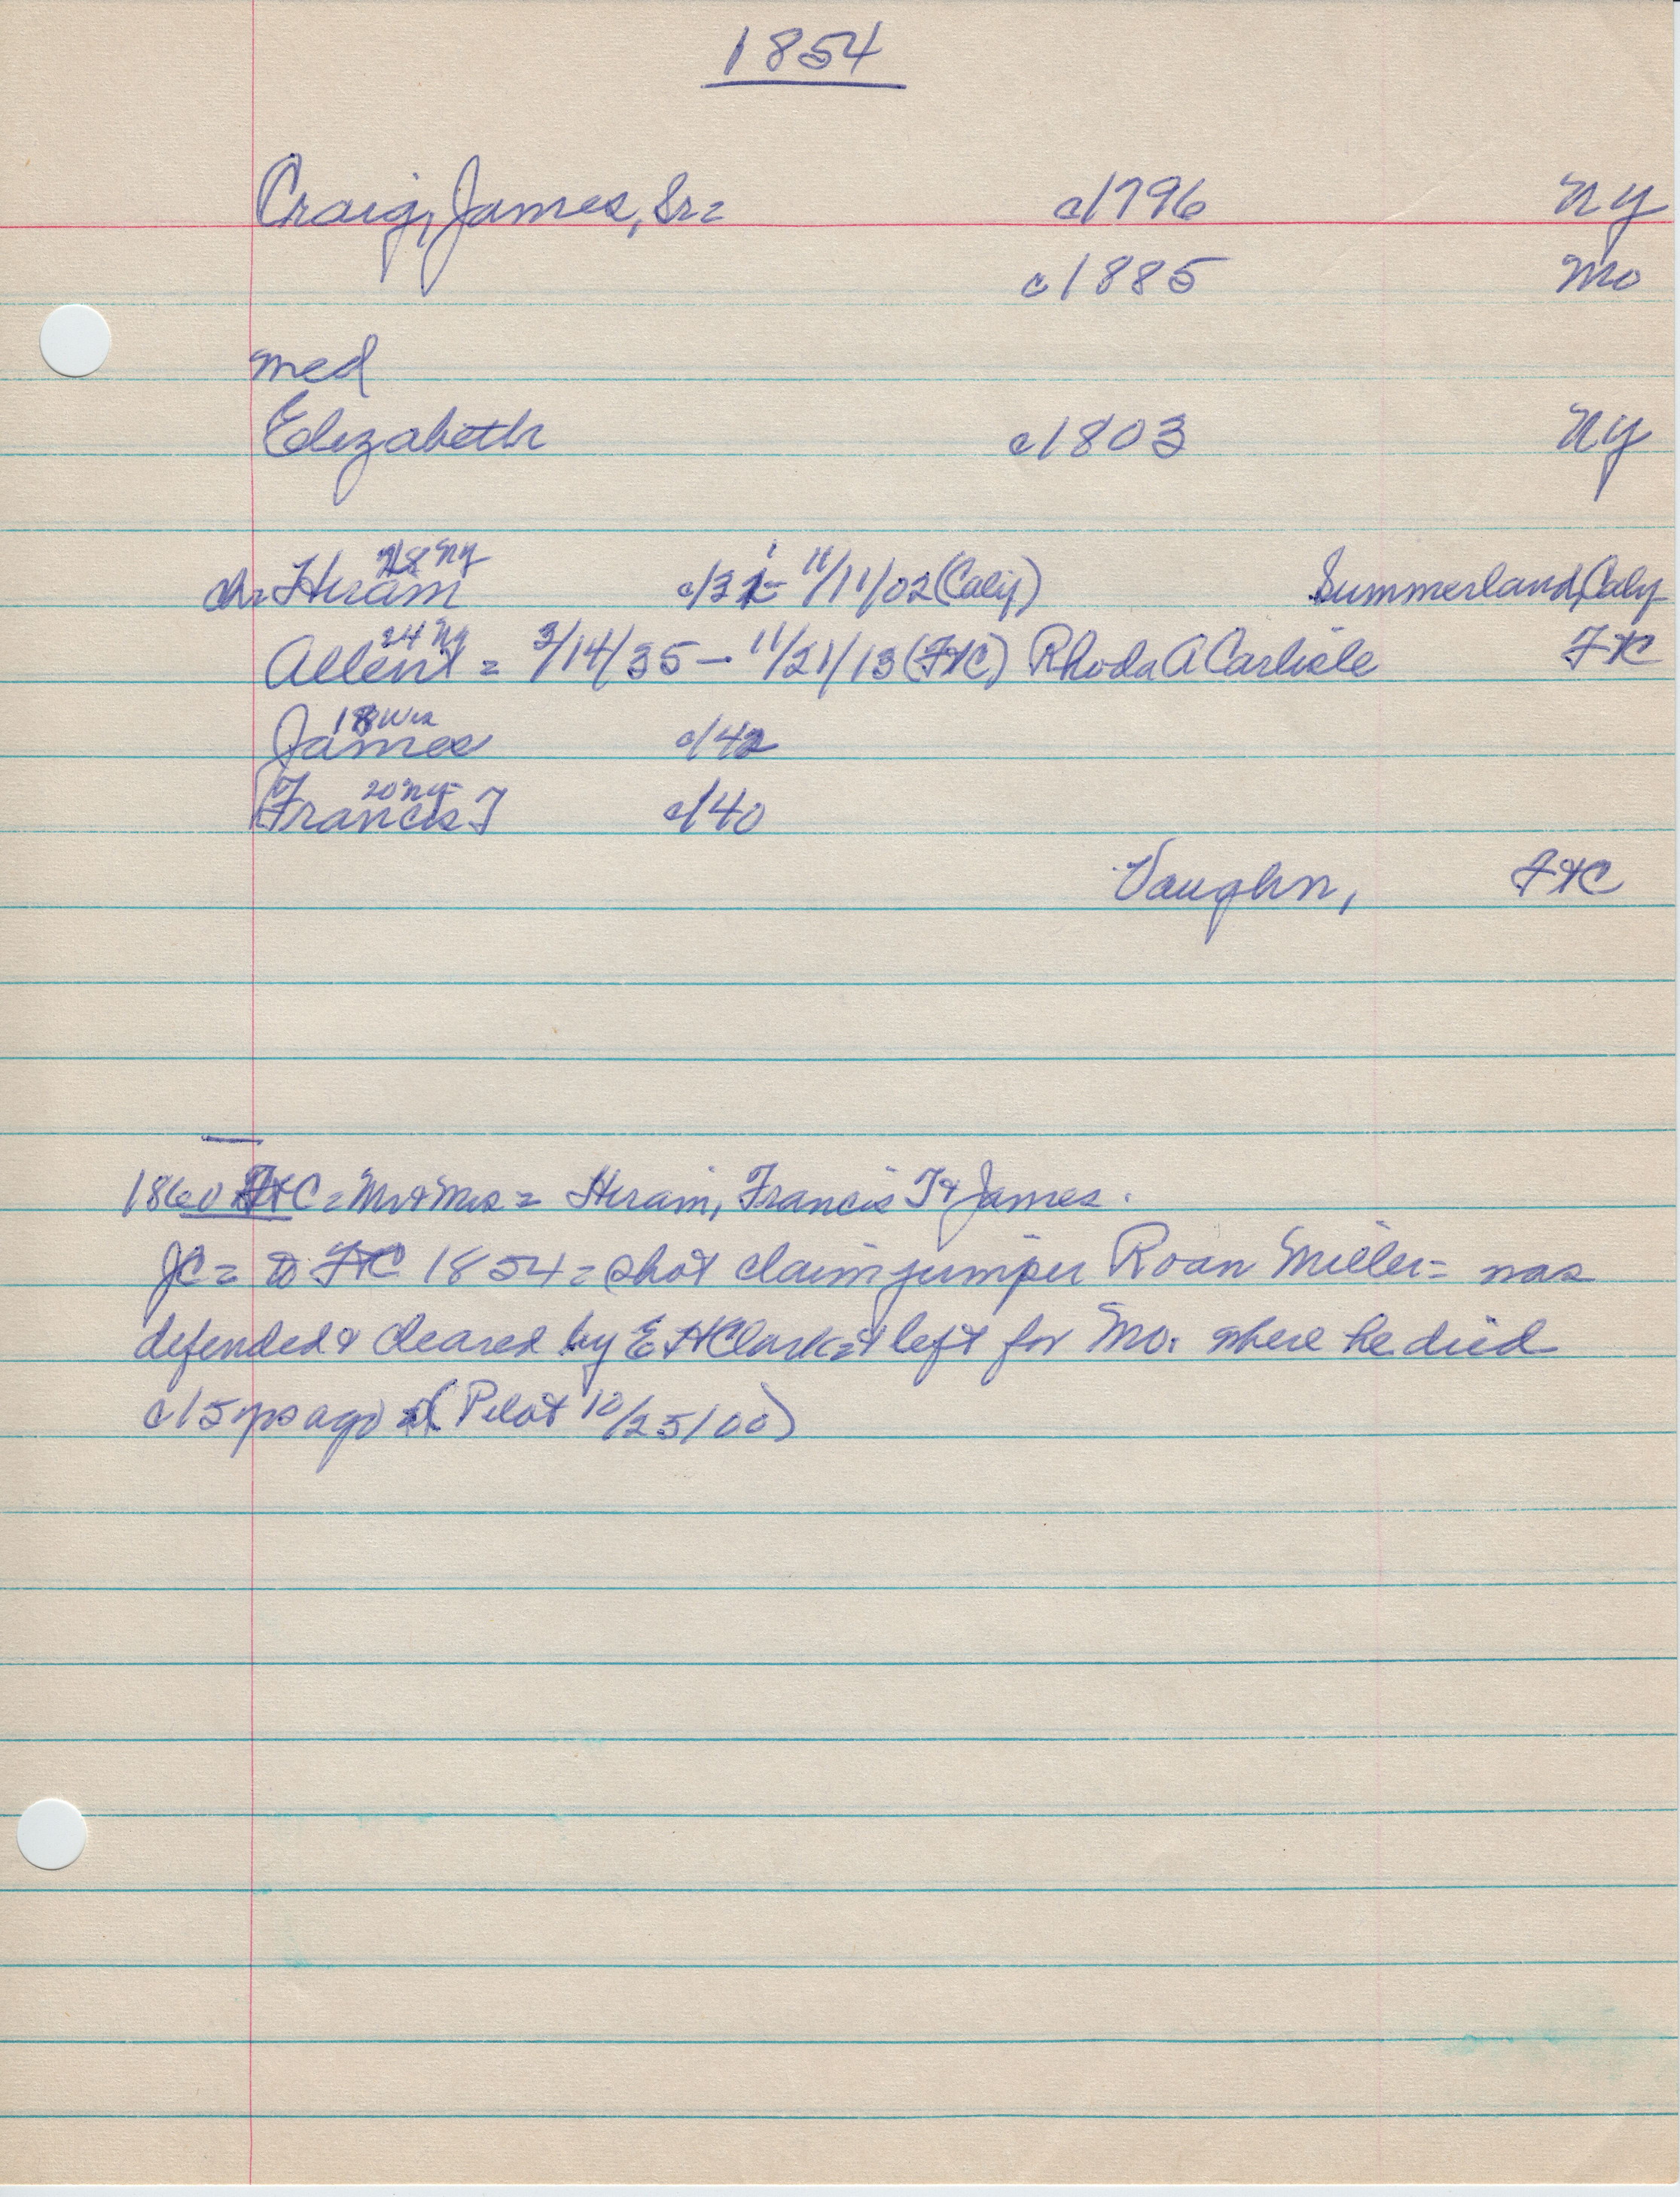 1854
Craig, James, Sr= c/1796 NY
c/1885 Mo
med
Elizabeth c/1803 NY
28 NY
ch= Hiram c/32 - 11/11/02 (Calif) Summerland, Calif
24 NY
Allen = 3/14/35 - 11/21/13 (FtC) Rhoda A Carlisle FtC
18 Wis
James c/42
20 NY
Francis T c/40
Vaughn, FtC
1860 FtC = Mr & Mrs = Hiram, Francis T & James.
JC = to FtC 1854 = shot claim jumper Roan Miller = was
defended & cleared by E H Clark & left for Mo. where he died
c 15 yrs ago (Pilot 10/25/00)